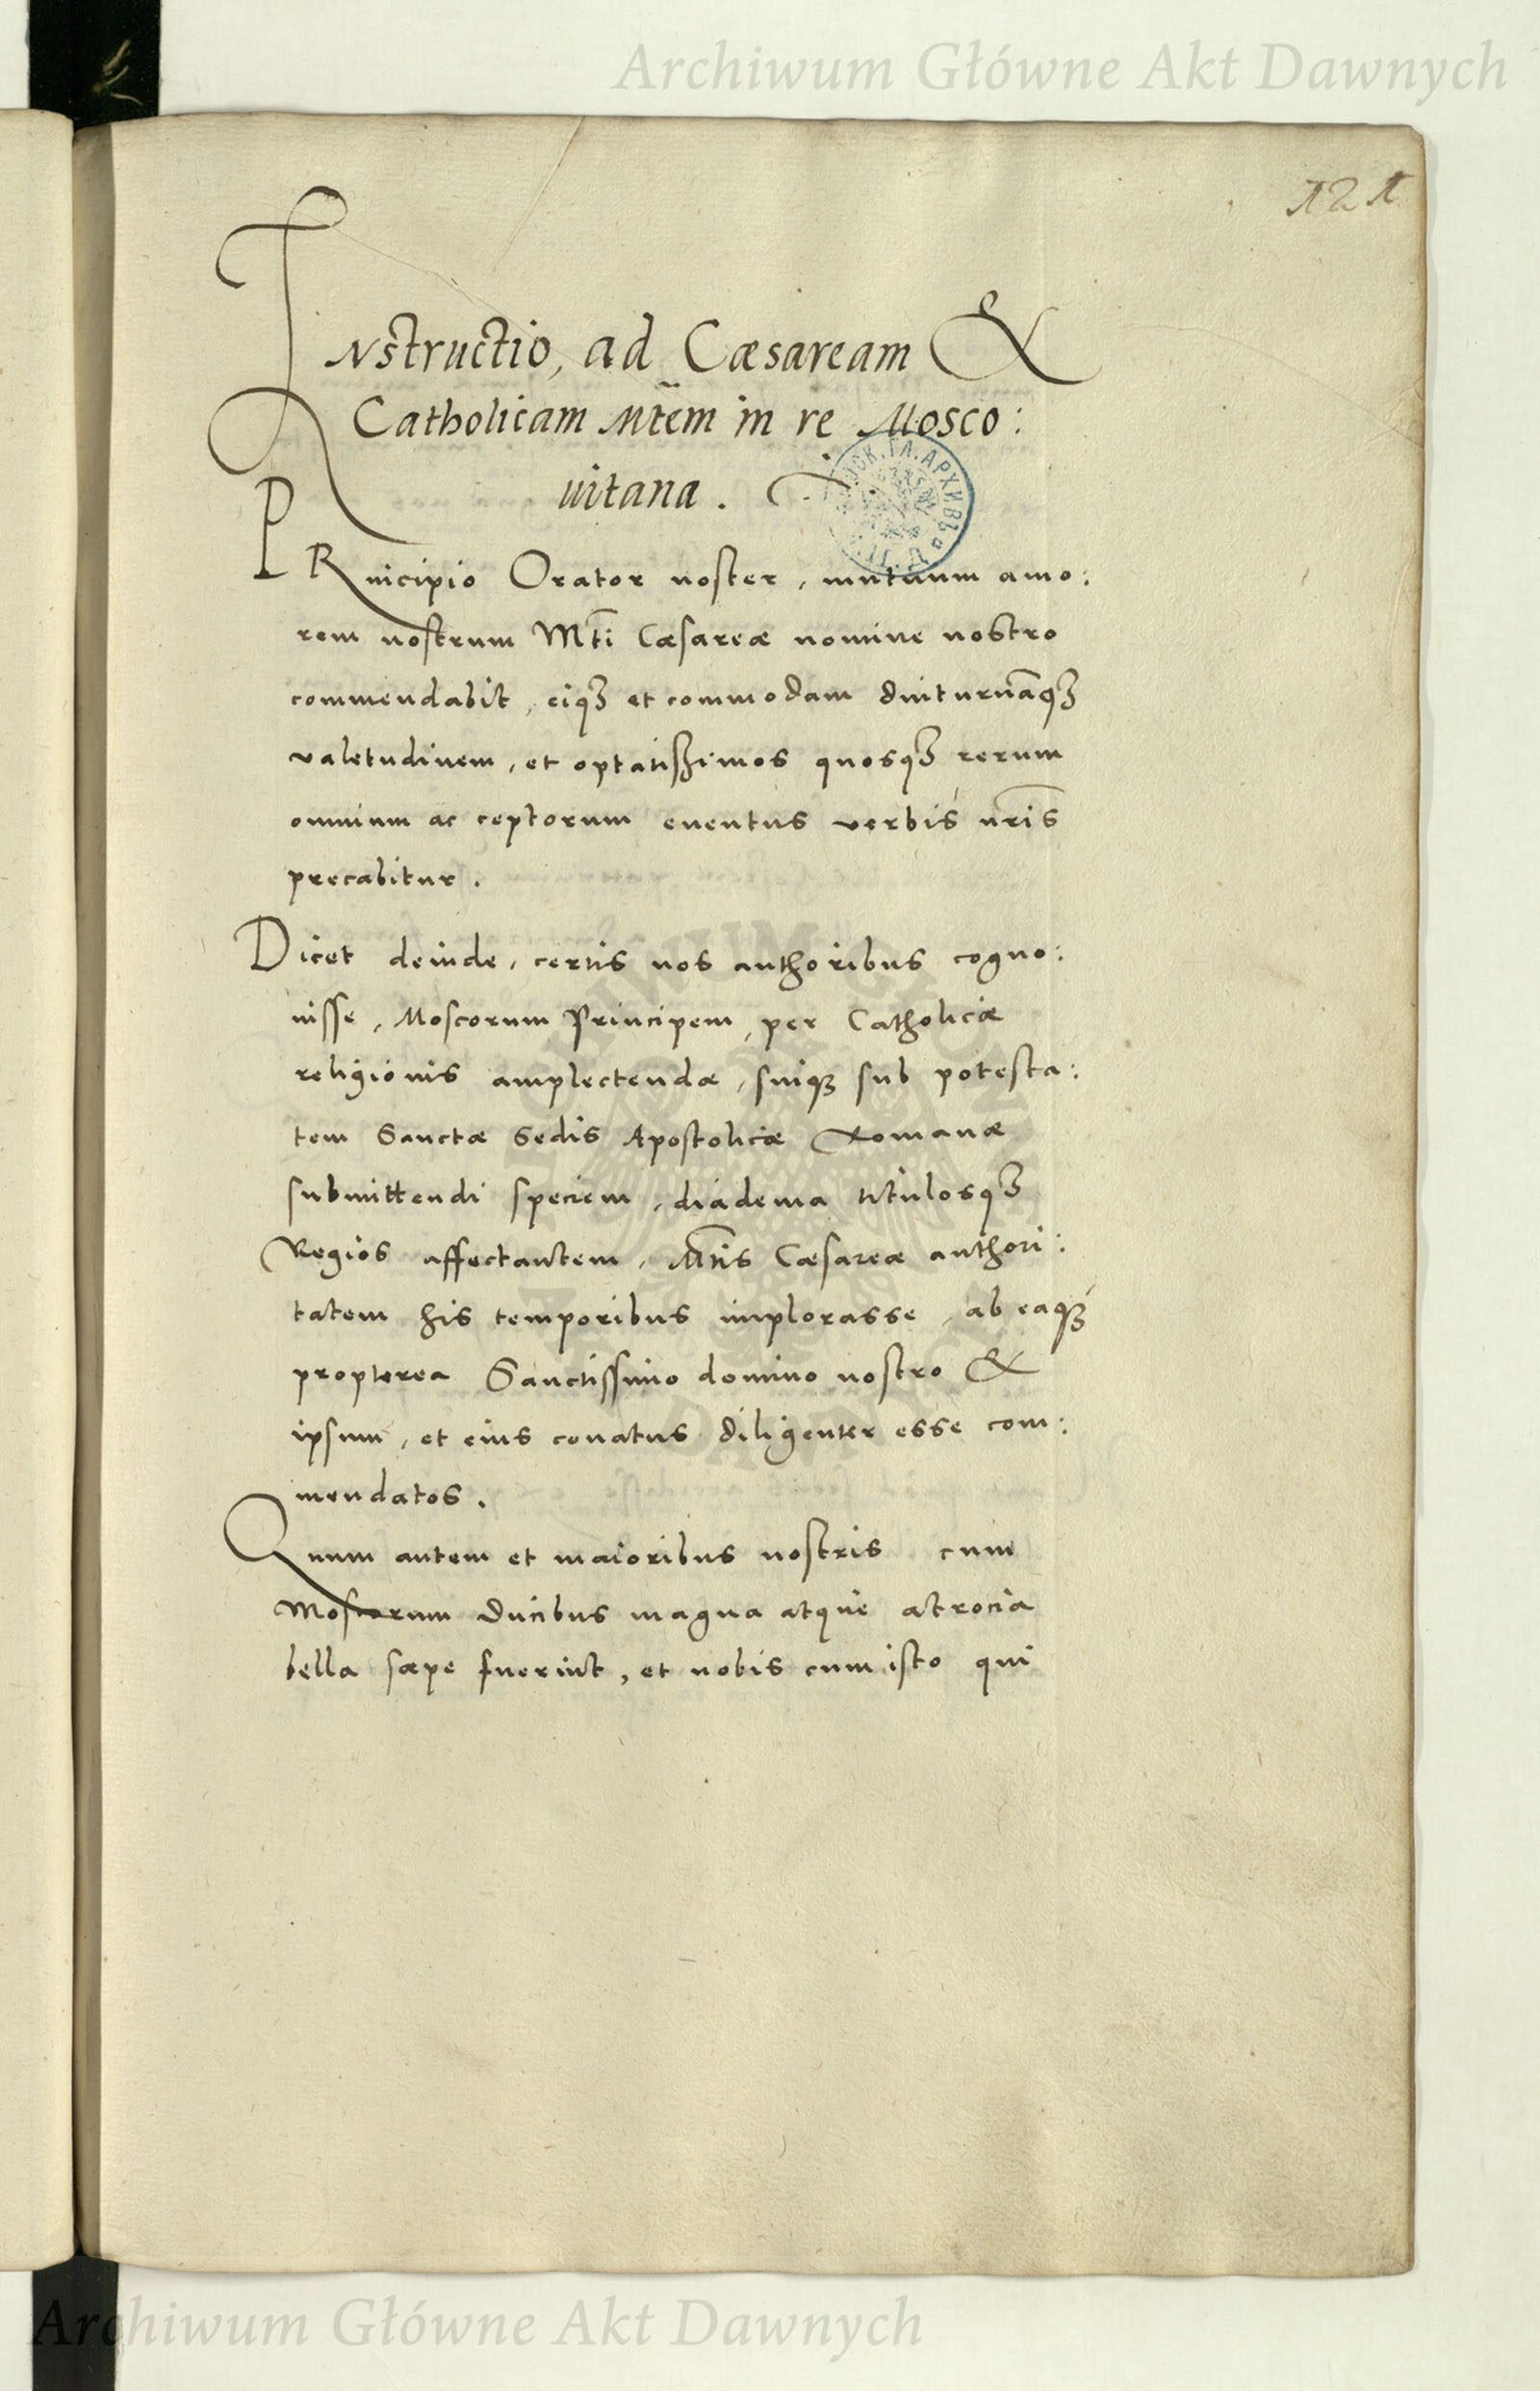 Archiwum Główne Akt Dawnych
121
INstructio, ad Cæsaream &
Catholicam Mtẽm in re Mosco:
uitana.
PRincipio Orator noster, mutuum amo:
rem nostrum Mti Cæsareæ nomine nostro
commendabit, eiqꝫ et commodam diuturnãqꝫ
valetudinem, et optatißimos quosqꝫ rerum
omnium ac ceptorum euentus verbis nr̃is
precabitur.
Dicet deinde, certis nos authoribus cogno:
uisse, Moscorum Principem, per Catholicæ
religionis amplectendæ, suiqꝫ sub potesta:
tem Sanctæ Sedis Apostolicæ Romanæ
submittendi speciem, diadema titulosqꝫ
Regios affectantem, Mtis Cæsareæ authori:
tatem his temporibus implorasse, ab eaqꝫ
propterea Sanctissimo domino nostro &
ipsum, et eius conatus diligenter esse com:
mendatos.
Quum autem et maioribus nostris cum
Moscorum Ducibus magna atque atrocia
bella sæpe fuerint, et nobis cum isto qui
Archiwum Główne Akt Dawnych